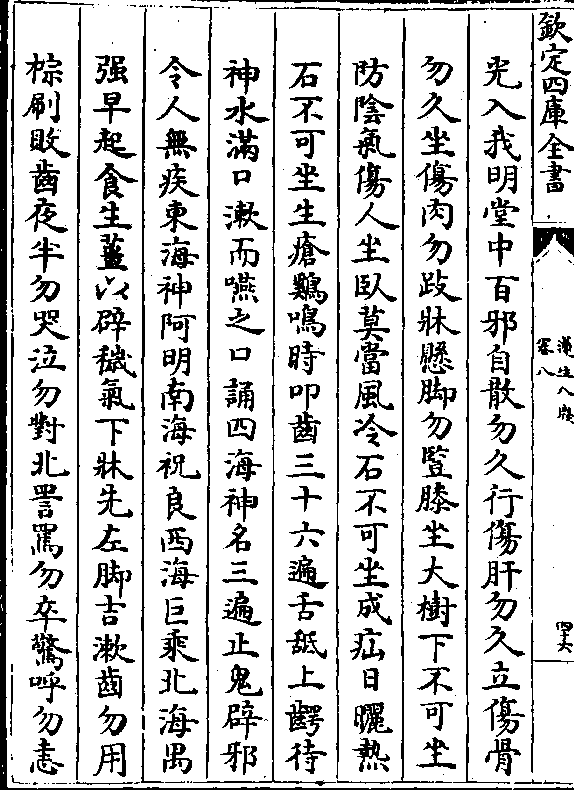 欽定四庫全書
遵生八牋
卷八
四十六
光入我明堂中百邪自散勿久行傷肝勿久立傷骨
勿久坐傷肉勿跂牀懸脚勿豎膝坐大樹下不可坐
防陰氣傷人坐臥莫當風冷石不可坐成疝日曬熱
石不可坐生瘡鷄鳴時叩齒三十六遍舌舐上齶待
神水滿口漱而嚥之口誦四海神名三遍止鬼辟邪
令人無疾東海神阿明南海祝良西海巨乘北海禺
强早起食生薑以辟穢氣下牀先左脚吉漱齒勿用
棕刷敗齒夜半勿哭泣勿對北詈罵勿卒驚呼勿恚